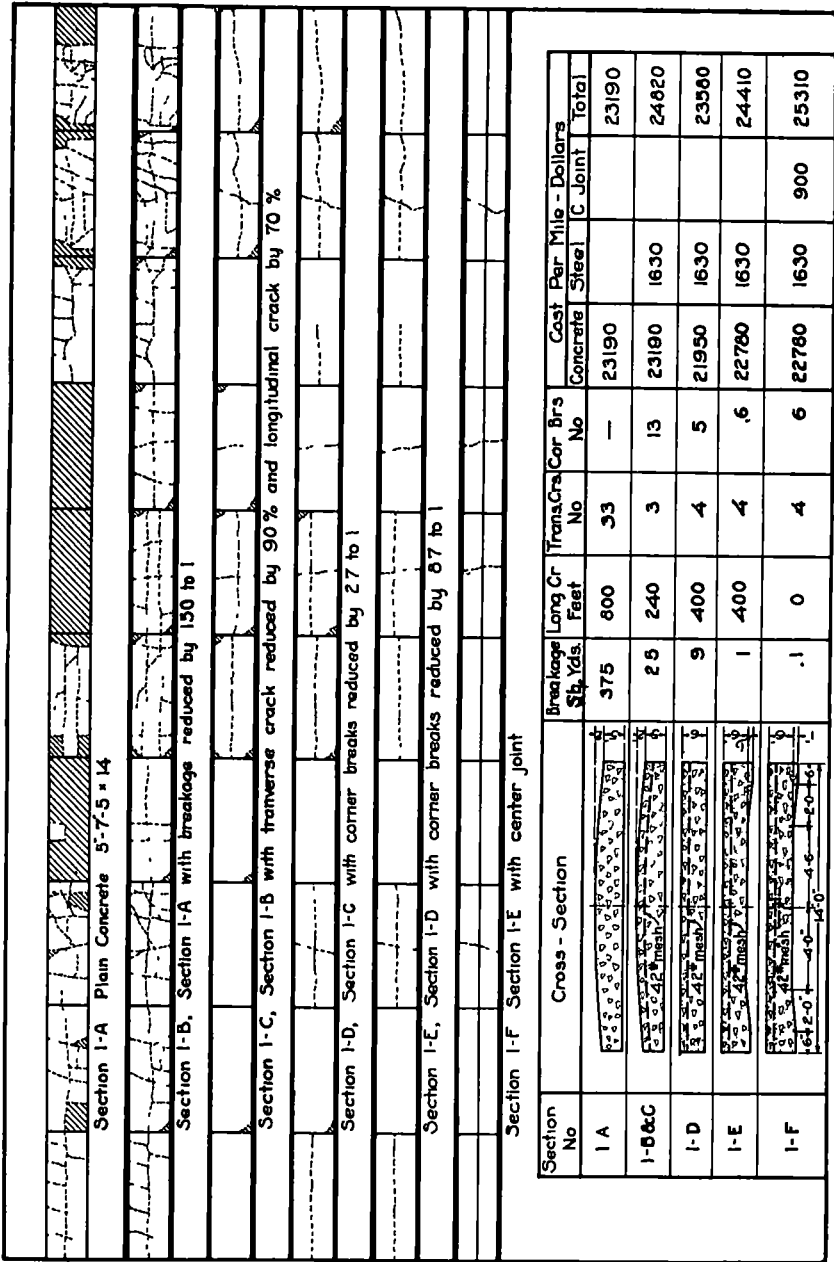 Section 1-A Plain Concrete 5-7-5 x 14
Section 1-B, Section 1-A with breakage reduced by 150 to 1
Section 1-C, Section 1-B with tranverse crack reduced by 90% and longitudinal crack by 70%
Section 1-D, Section 1-C with corner breaks reduced by 2.7 to 1
Section 1-E, Section 1-D with corner breaks reduced by 8.7 to 1
Section 1-F Section 1-E with center joint
Section No Cross - Section Breakage Sq. Yds. Long Cr Feet Trans. Crs. No Cor Brs No Cost Per Mile - Dollars
Concrete Steel C Joint Total
1 A 375 800 33 — 23190 23190
1-B&C 42# mesh 25 240 3 13 23190 1630 24820
1-D 42# mesh 9 400 4 5 21950 1630 23580
1-E 42# mesh 1 400 4 .6 22780 1630 24410
1-F 42# mesh .1 0 4 6 22780 1630 900 25310
6" 2'-0" 4'-0" 4'-6" 2'-0" 6"
14'-0"